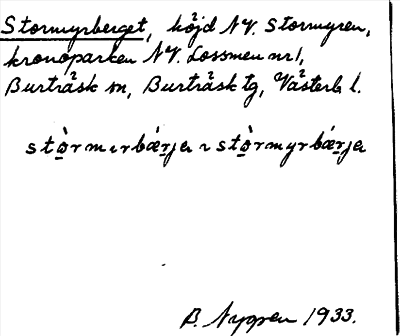 Stormyrberget, höjd NV. Stormyren,
kronoparken NV. Lossmen nr 1,
Burträsk sn, Burträsk tg, Västerb. l.
stò̱rmırbǽṟja ɩ stò̱rmyrbǽṟja
B. Nygren 1933.